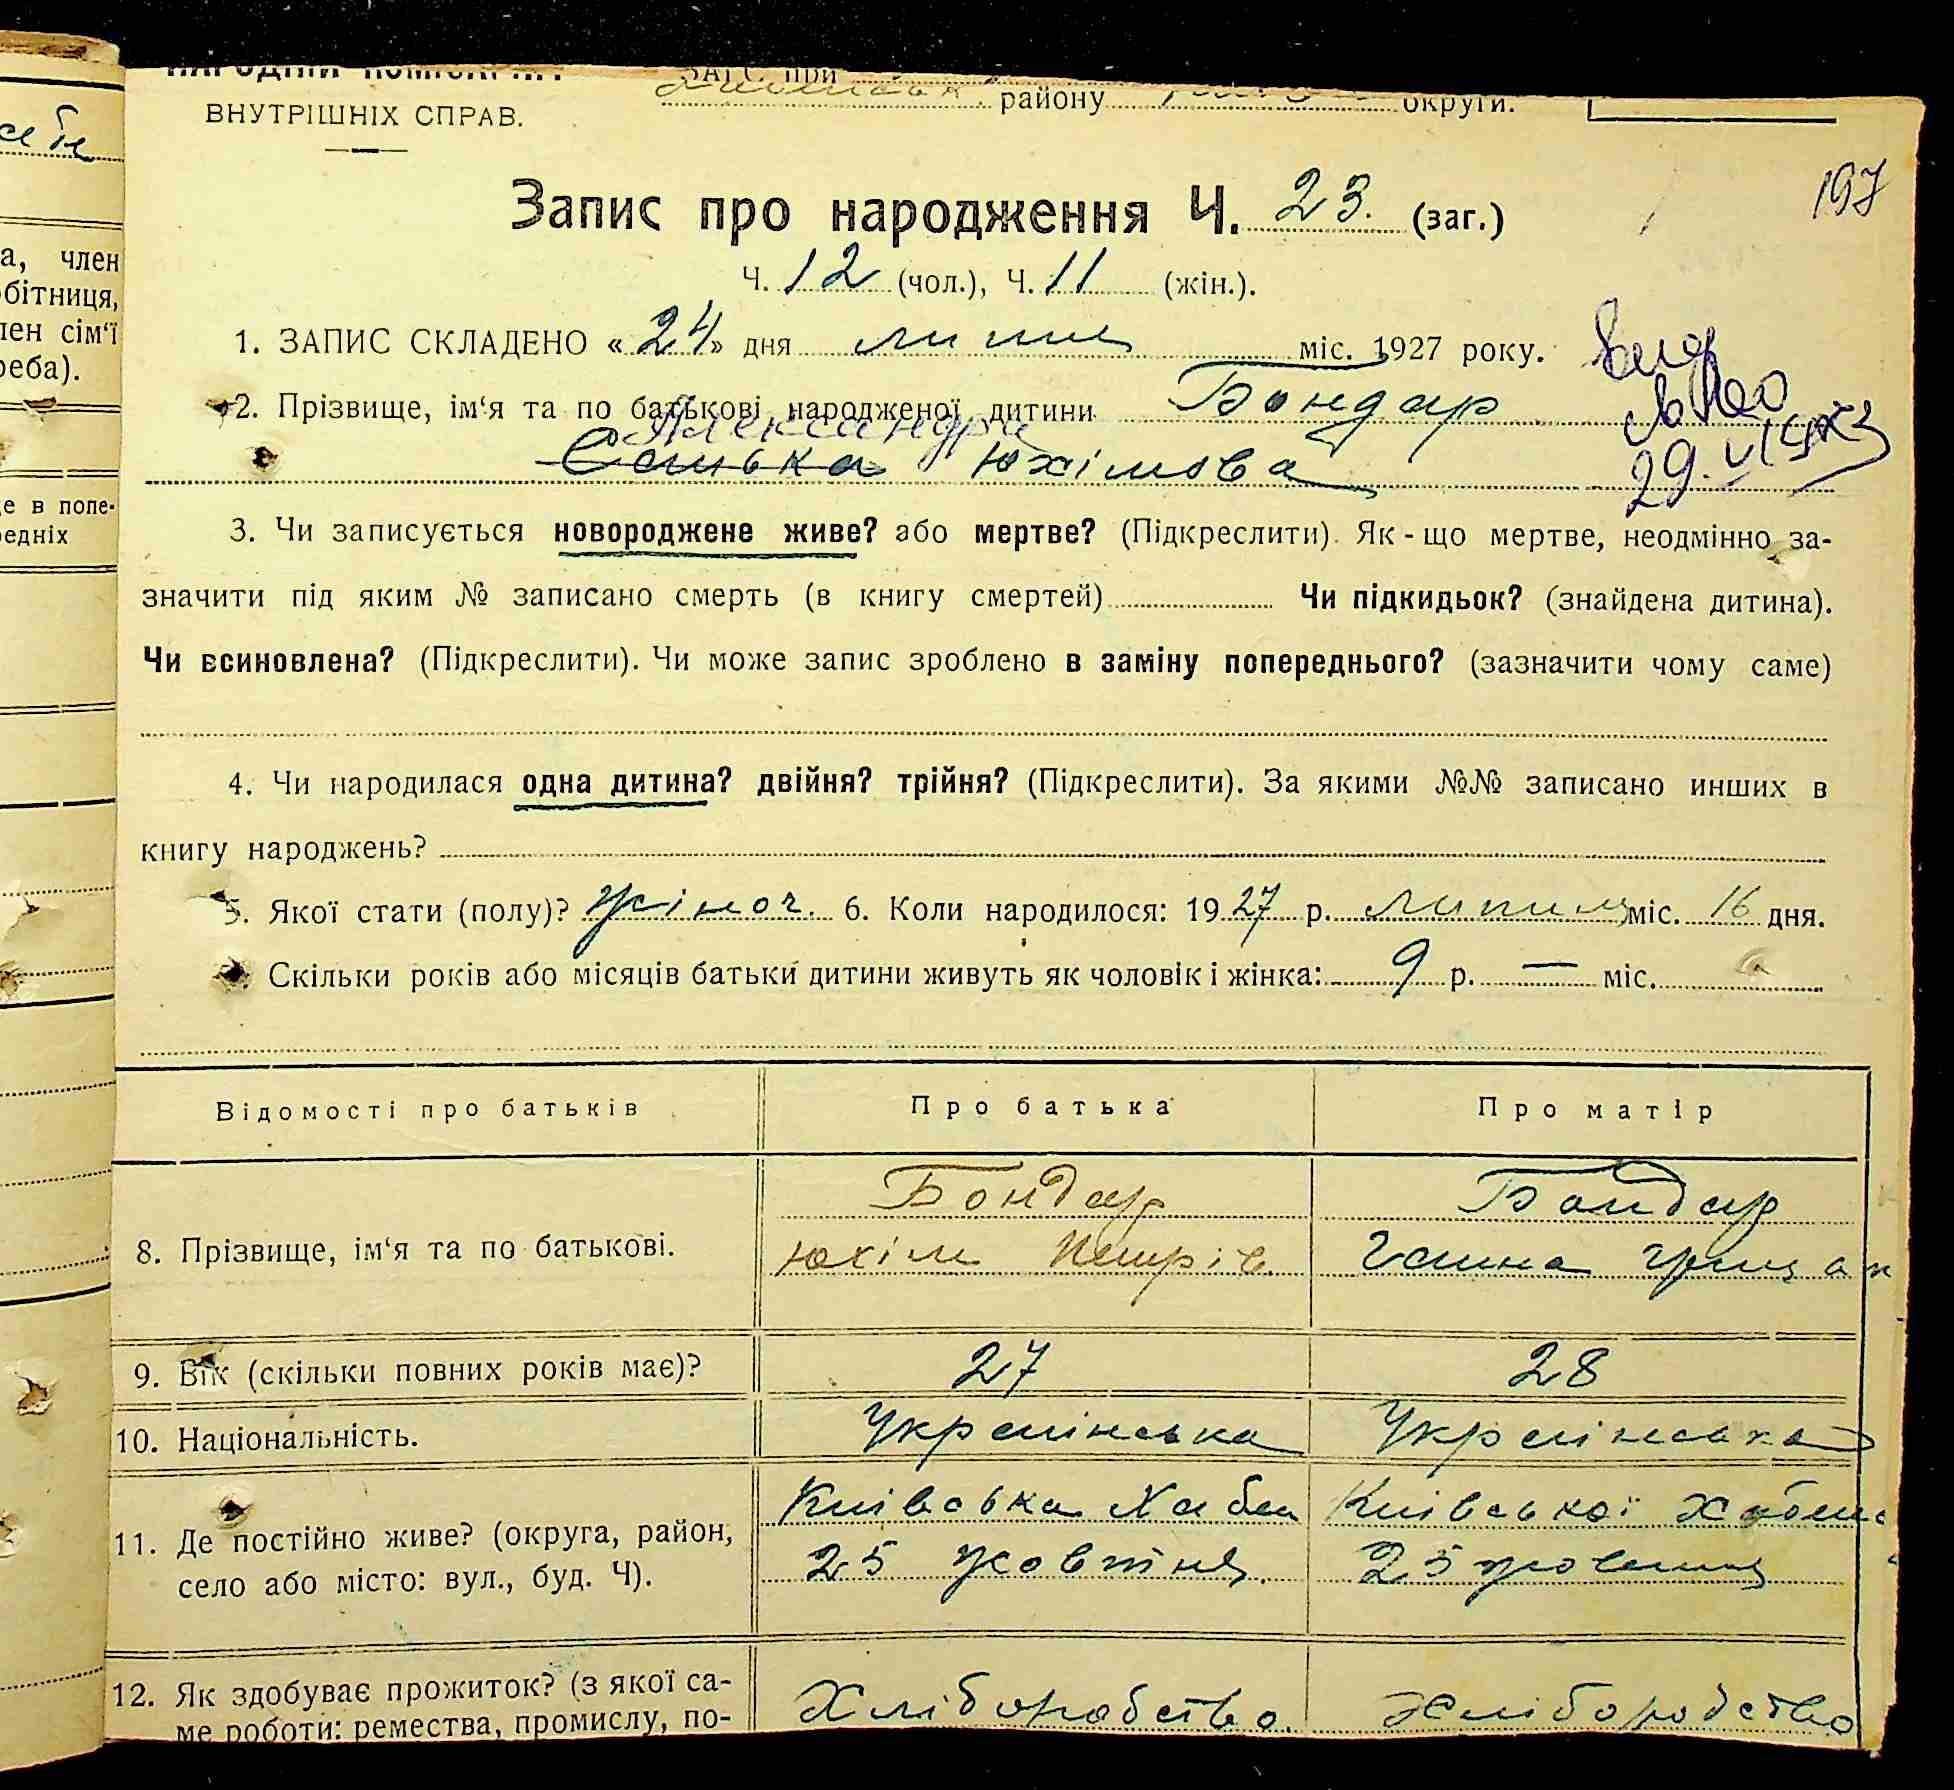 ВНУТРІШНІХ СПРАВ.
ЗАГС при
району округи.
197
Запис про народження Ч. 23. (заг.)
Ч. 12 (чол.), Ч. 11 (жін.).
1. ЗАПИС СКЛАДЕНО « 24 » дня липня міс. 1927 року.
2. Прізвище, ім‘я та по батькові народженої дитини Бондар
Александра
Юхімова
29.
3. Чи записується новороджене живе? або мертве? (Підкреслити). Як-що мертве, неодмінно за-
значити під яким № записано смерть (в книгу смертей) Чи підкидьок? (знайдена дитина).
Чи всиновлена? (Підкреслити). Чи може запис зроблено в заміну попереднього? (зазначити чому саме)
4. Чи народилася одна дитина? двійня? трійня? (Підкреслити). За якими №№ записано инших в
книгу народжень?
5. Якої стати (полу)? жіноч. 6. Коли народилося: 1927 р. липня міс. 16 дня.
Скільки років або місяців батьки дитини живуть як чоловік і жінка: 9 р. — міс.
Відомості про батьків Про батька Про матір
8. Прізвище, ім‘я та по батькові. Бондар Бондар
Юхім Петрів Ганна
9. Вік (скільки повних років має)? 27 28
10. Національність. Українська Українська
11. Де постійно живе? (округа, район, Київська Хабн Київської Хабн
село або місто: вул., буд. Ч). 25 жовтня 25 жовтня
12. Як здобуває прожиток? (з якої са- Хліборобство. Хліборобство
ме роботи: ремества, промислу, по-
а, член
обітниця,
лен сім‘ї
реба).
це в попе-
редніх